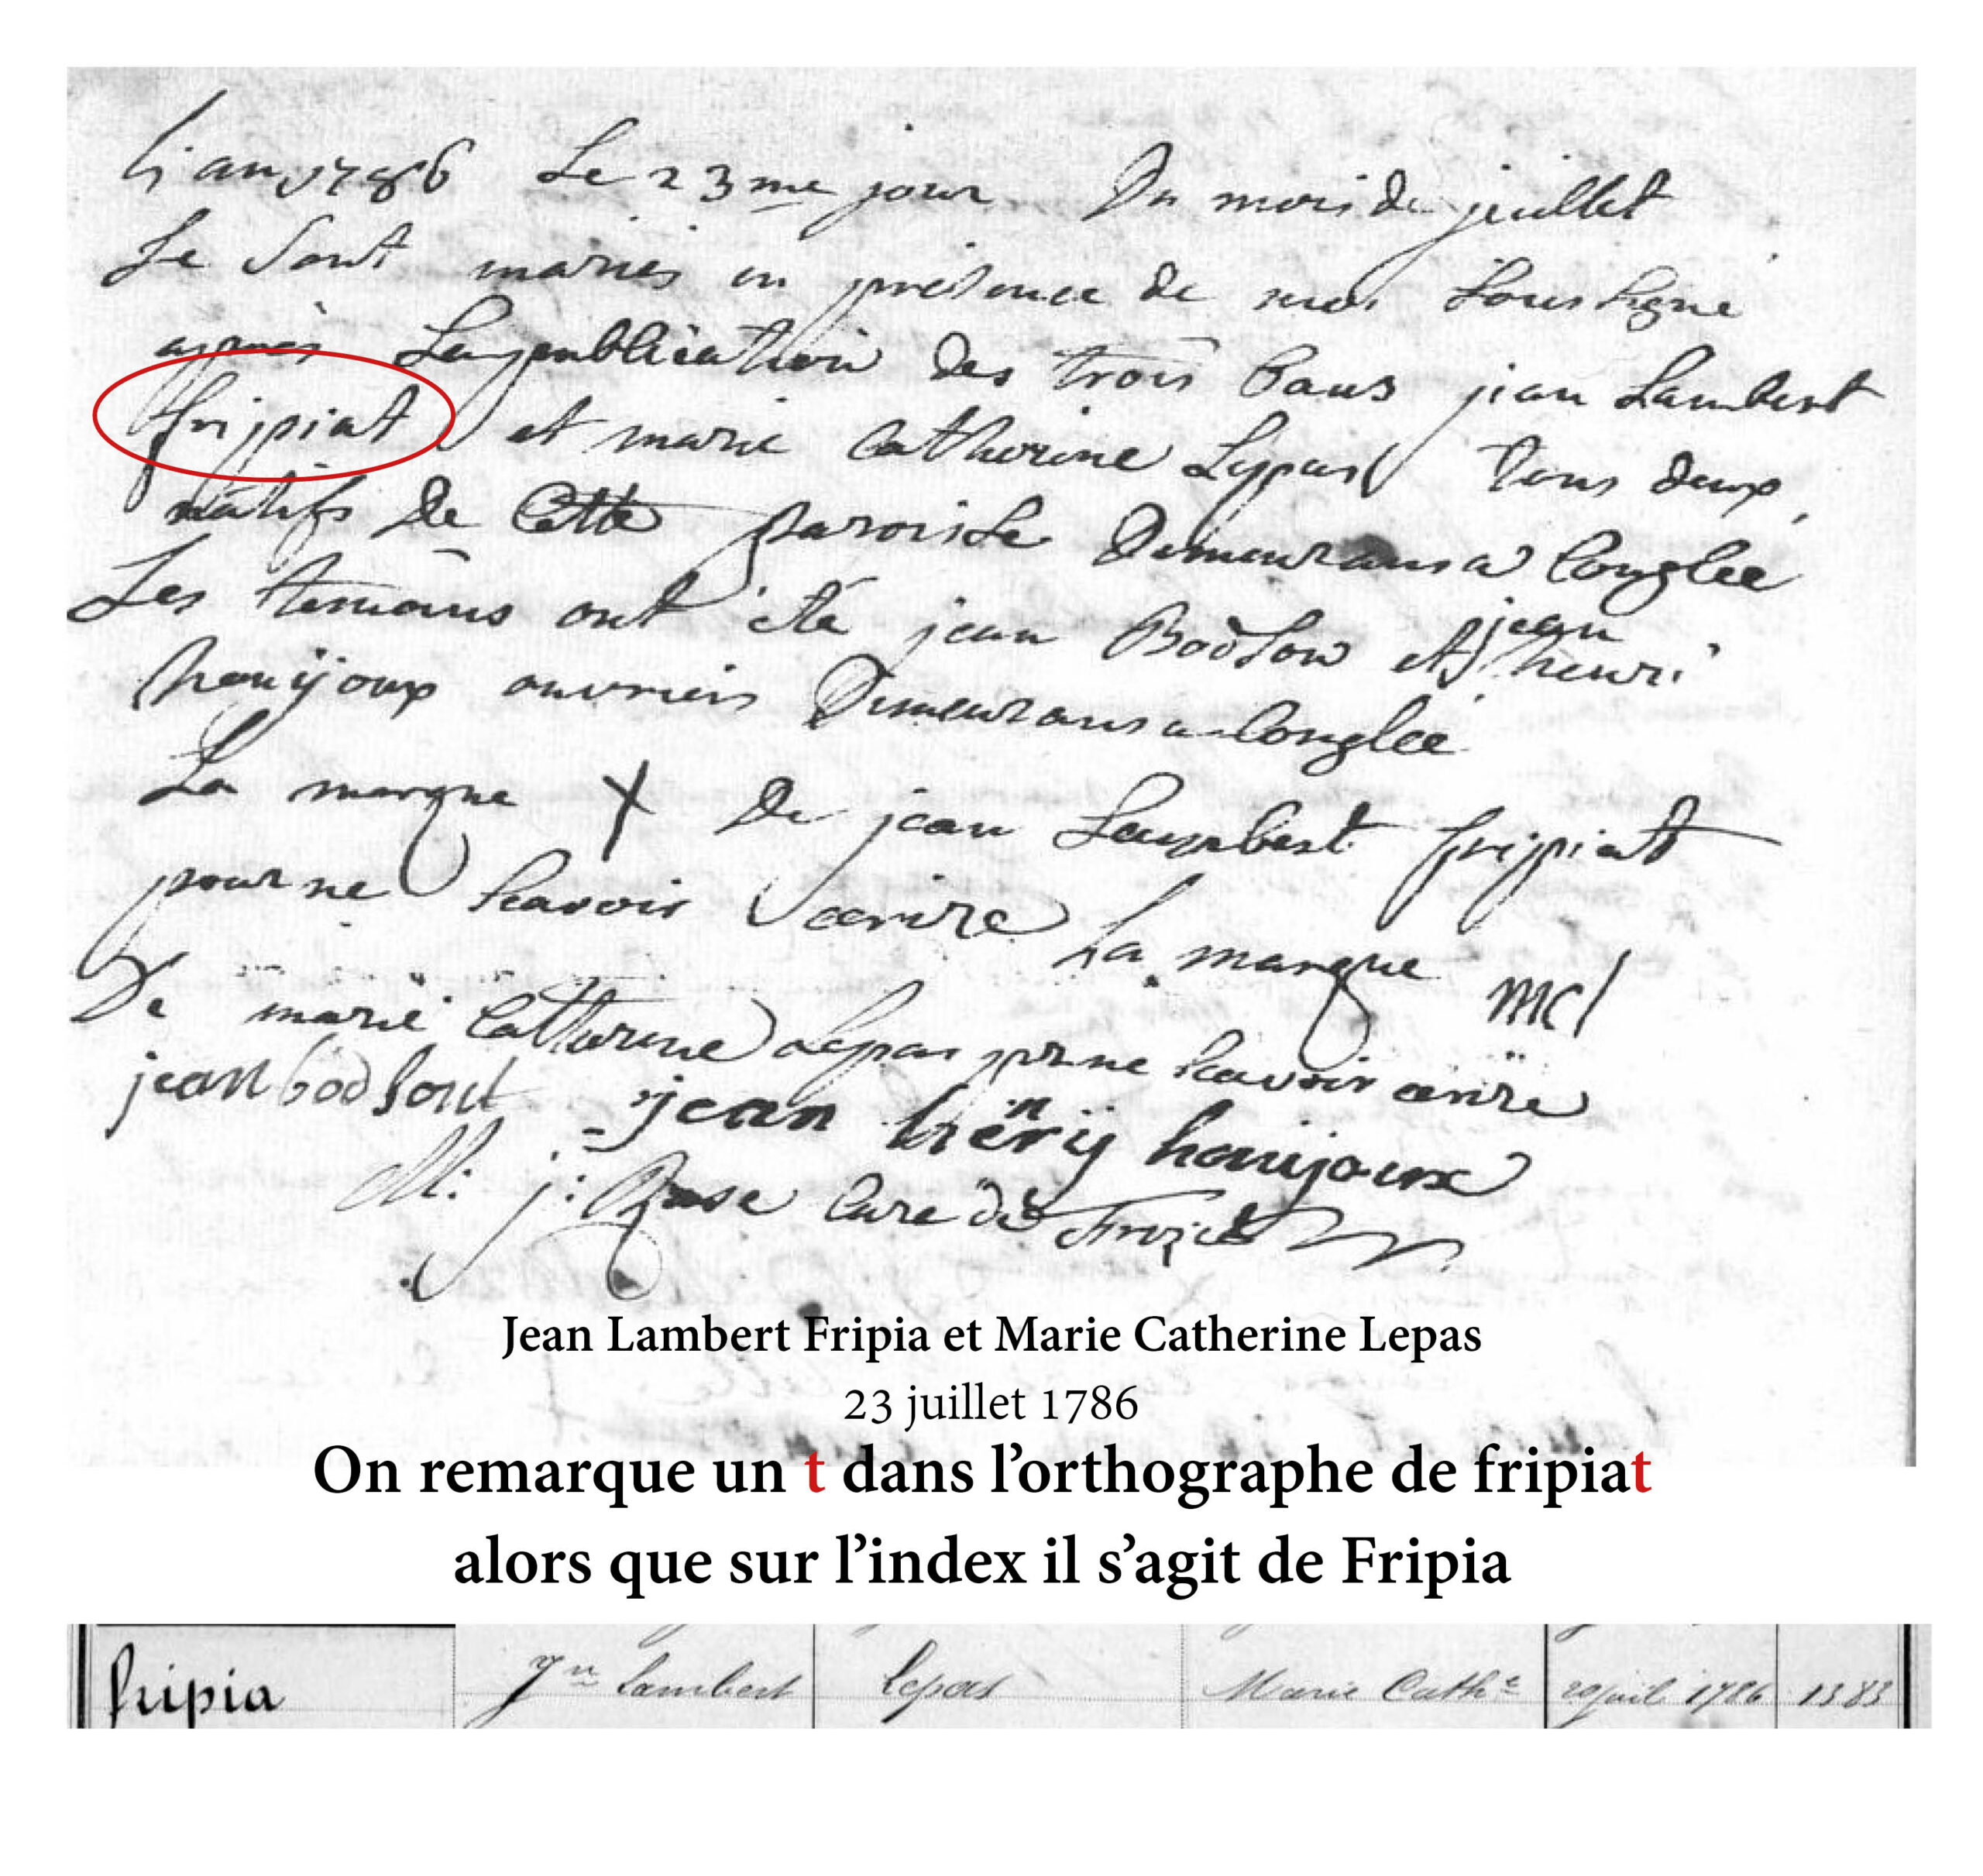 L'an 1786 Le 23me jour Du mois de juillet
Se sont mariés en presence de moi Soussigné
après La publication des trois bans jean Lambert
fripiat et marie Catherine Lepas tous deux
natifs de Cette paroisse Demeurans a Conglée
Les temoins ont été jean Bodson et jean henri
houijoux ouvriers Demeurans a Conglee
La marque X De jean Lambert fripiat
pour ne scavoir ecrire La marque MCl
De marie Catherine Lepas pr ne scavoir ecrire
jean bodson
jean henrÿ houijoux
M: j: Curé de
Jean Lambert Fripia et Marie Catherine Lepas
23 juillet 1786
On remarque un t dans l’orthographe de fripiat
alors que sur l’index il s’agit de Fripia
fripia Jn Lambert Lepas Marie Cathe juil 1786 1383